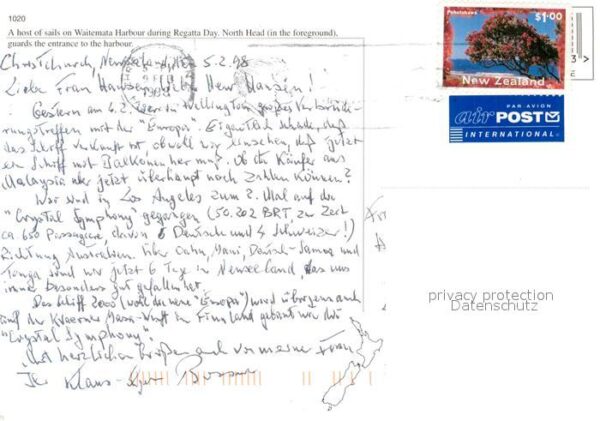 1020
A host of sails on Waitemata Harbour during Regatta Day. North Head (in the foreground),
guards the entrance to the harbour.
Christchurch, Neuseeland, 5.2.98
Liebe Frau Hansen, lieber Herr Hansen!
Gestern am 4.2. war in Wellington großes
mit der "Europa". Eigentlich schade, daß
das Schiff verkauft ist, obwohl wir einsehen, daß jetzt
ein Schiff mit Balkonen her muß. Ob die Käufer aus
Malaysia aber jetzt überhaupt noch zahlen können?
Wir sind in Los Angeles zum 2. Mal auf die
"Crystal Symphony" gegangen (50.202 BRT, zur Zeit
ca 650 Passagiere, davon 6 Deutsche und 4 Schweizer!)
Richtung Australien. Über Oahu, Maui, Samoa und
Tonga sind wir jetzt 6 Tage in Neuseeland, das uns
immer besonders gut gefallen hat.
Das Schiff 2000 (wohl die neue "Europa") wird übrigens auch
auf der Kvaerner Masa-Werft in Finnland gebaut wie die
"Crystal Symphony".
Mit herzlichen Grüßen auch von meiner Frau
Ihr Klaus
Pohutukawa
$1.00
New Zealand
PAR AVION
air POST
INTERNATIONAL
3
privacy protection
Datenschutz